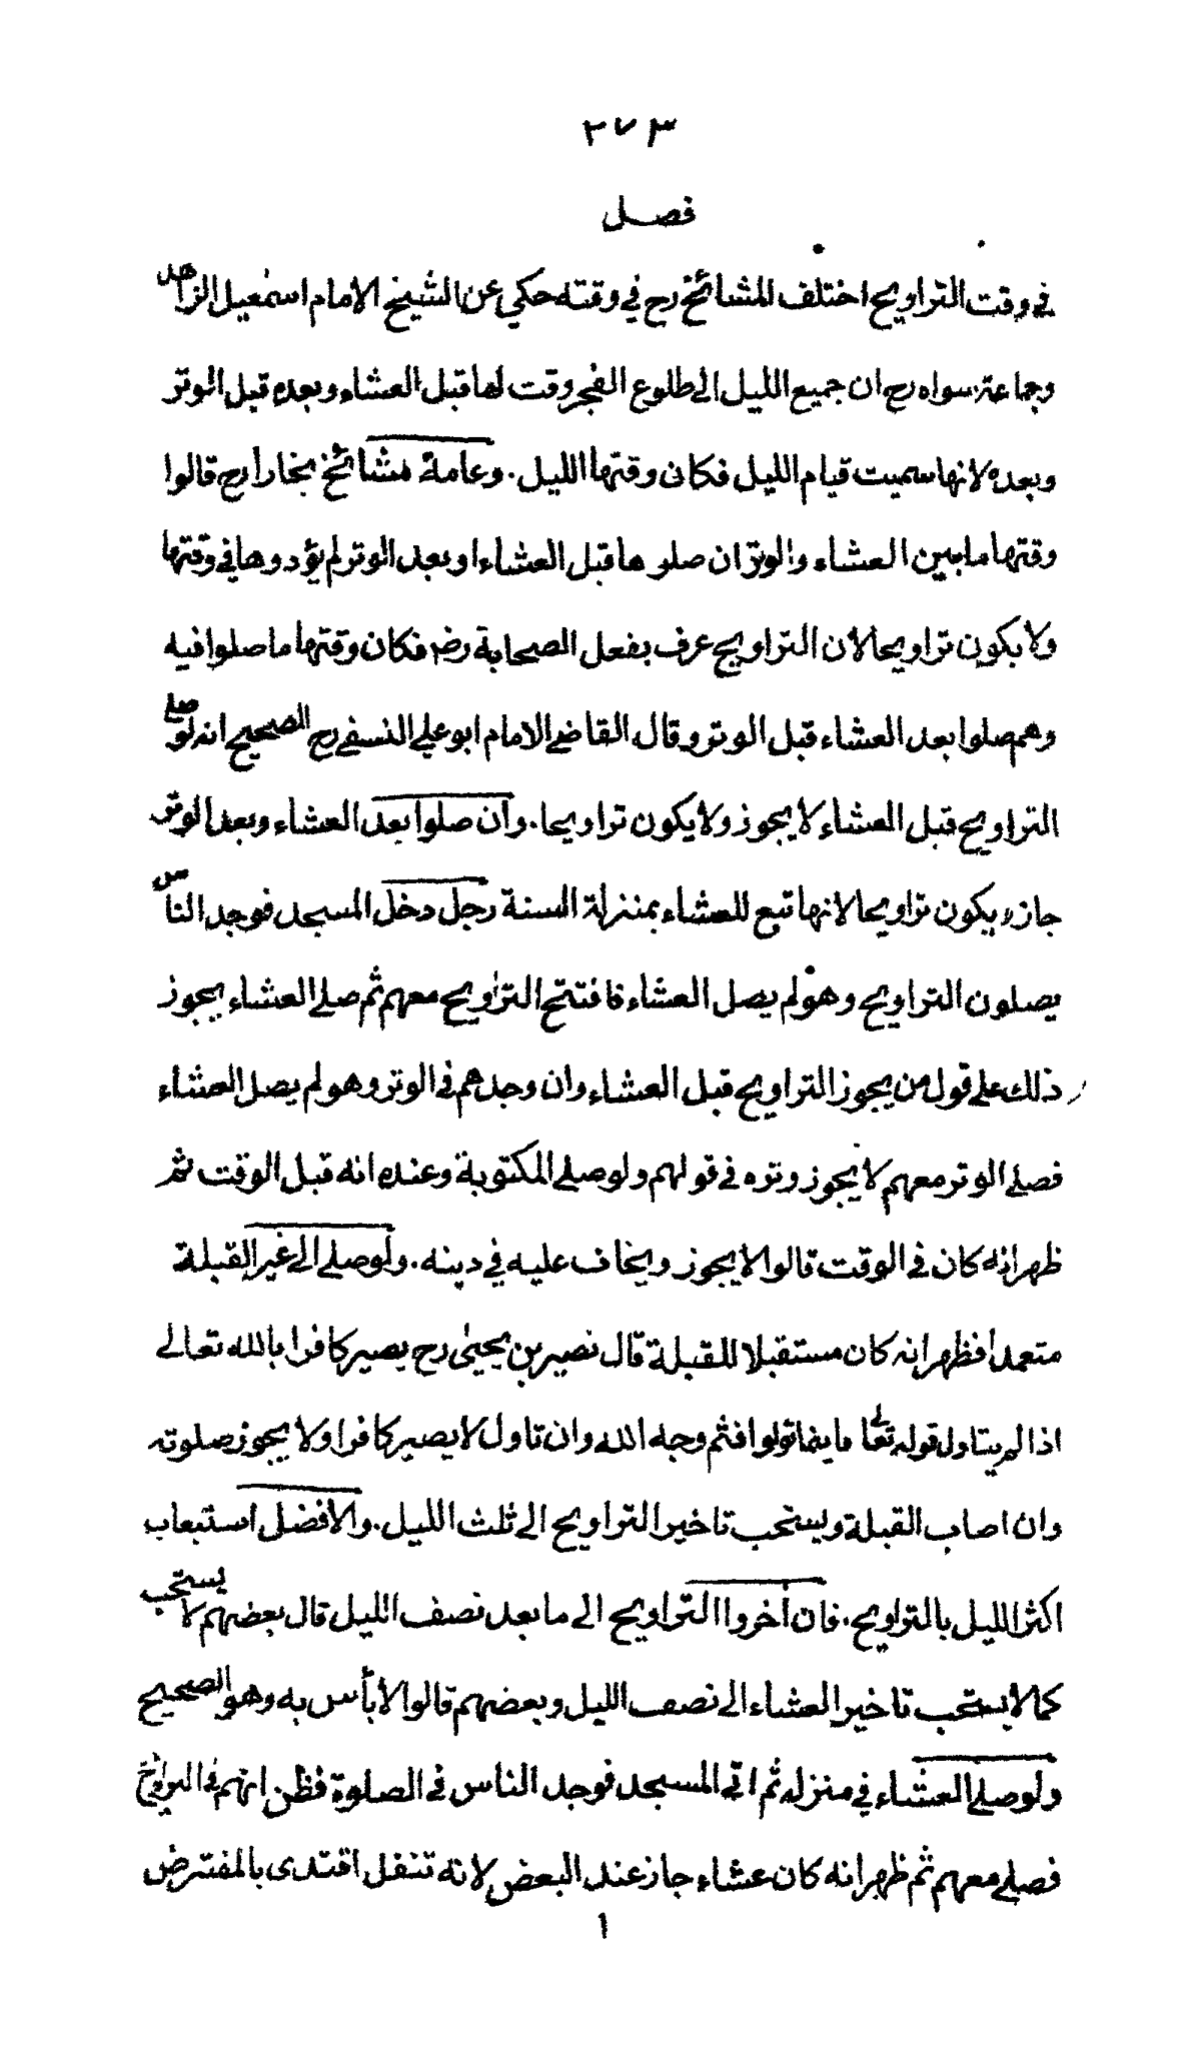 ٢٧٣
فصل
في وقت التراويح اختلف المشائخ رح في وقته حكي عن الشيخ الامام اسمعيل الزاهد
وجماعة سواه رح ان جميع الليل الى طلوع الفجر وقت لها قبل العشاء وبعده قبل الوتر
وبعده لانها سميت قيام الليل فكان وقتها الليل . وعامة مشائخ بخارا رح قالوا
وقتها ما بين العشاء والوتر ان صلوها قبل العشاء او بعد الوتر لم يؤدوها في وقتها
ولا يكون تراويحا لان التراويح عرف بفعل الصحابة رضه فكان وقتها ما صلوا فيه
وهم صلوا بعد العشاء قبل الوتر وقال القاضي الامام ابو علي النسفي رح الصحيح انه لو صلى
التراويح قبل العشاء لا يجوز ولا يكون تراويحا . وان صلوا بعد العشاء وبعد الوتر
جاز ويكون تراويحا لانها تبع للعشاء بمنزلة السنة رجل دخل المسجد فوجد الناس
يصلون التراويح وهو لم يصل العشاء فافتتح التراويح معهم ثم صلى العشاء يجوز
ذلك على قول من يجوز التراويح قبل العشاء وان وجدهم في الوتر وهو لم يصل العشاء
فصلى الوتر معهم لا يجوز وتره في قولهم ولو صلى المكتوبة وعنده انه قبل الوقت ثم
ظهر انه كان في الوقت قالوا لا يجوز ويخاف عليه في دينه . ولو صلى الى غير القبلة
متعمدا فظهر انه كان مستقبلا للقبلة قال نصير بن يحيى رح يصير كافرا بالله تعالى
اذا لم يتاول قوله تعا فاينما تولوا فثم وجه الله وان تاول لا يصير كافرا ولا يجوز صلوته
وان اصاب القبلة ويستحب تاخير التراويح الى ثلث الليل . والافضل استيعاب
اكثر الليل بالتراويح . فان اخروا التراويح الى ما بعد نصف الليل قال بعضهم لا يستحب
كما لا يستحب تاخير العشاء الى نصف الليل وبعضهم قالوا لا بأس به وهو الصحيح
ولو صلى العشاء في منزله ثم اتى المسجد فوجد الناس في الصلوة فظن انهم في التراويح
فصلى معهم ثم ظهر انه كان عشاء جاز عند البعض لانه تنفل اقتدى بالمفترض
١